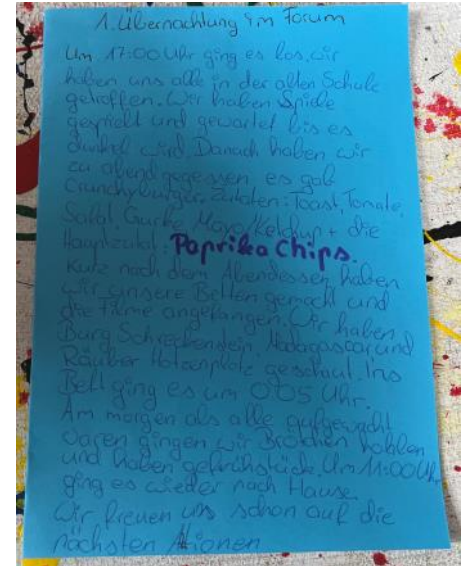 1. Übernachtung im Forum
Um 17:00 Uhr ging es los, wir
haben uns alle in der alten Schule
getroffen. Wir haben Spiele
gespielt und gewartet bis es
dunkel wird. Danach haben wir
zu abend gegessen, es gab
Crunchyburger. Zutaten: Toast, Tomate,
Salat, Gurke, Mayo/Ketchup + die
Hauptzutat: Paprika Chips.
Kurz nach dem Abendessen haben
wir unsere Betten gemacht und
die Filme angefangen. Wir haben
Burg Schreckenstein, Madagascar und
Räuber Hotzenplotz geschaut. Ins
Bett ging es um 0:05 Uhr.
Am morgen als alle aufgewacht
waren gingen wir Brötchen hohlen
und haben gefrühstückt. Um 11:00 Uhr
ging es wieder nach Hause.
Wir freuen uns schon auf die
nächsten Aktionen